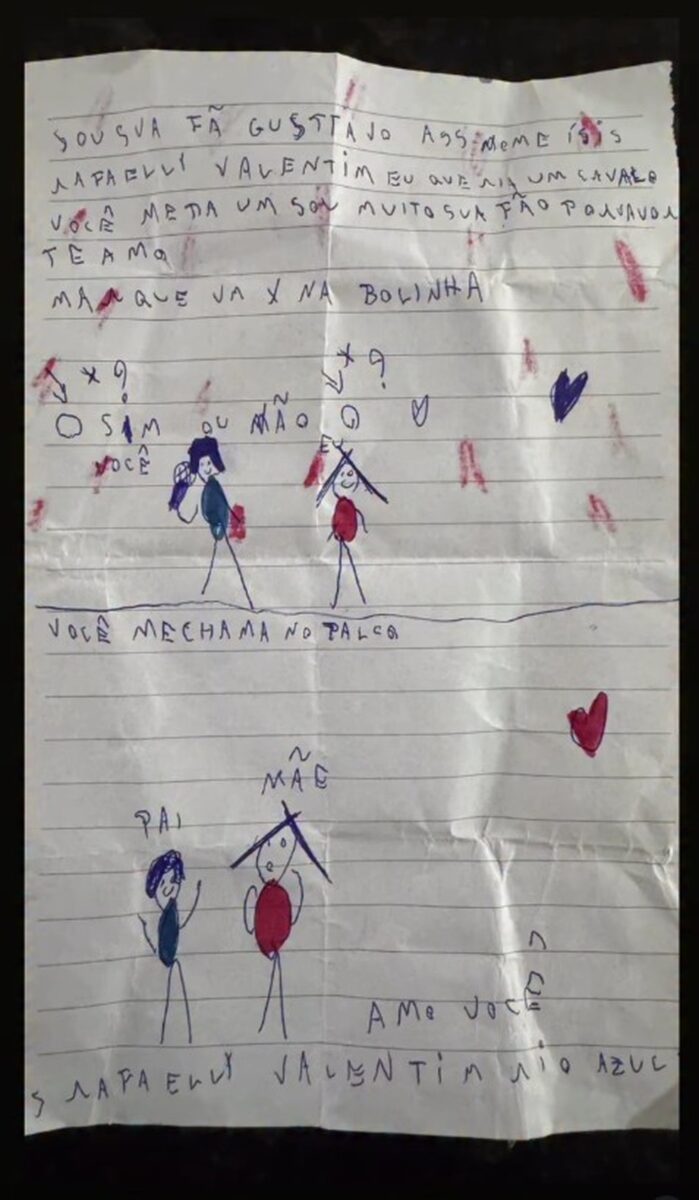 SOU SUA FÃ GUSTTAVO ASS MEME ÍSIS
RAFAELLY VALENTIM EU QUERIA UM CAVALO
VOCÊ ME DA UM SOU MUITO SUA FÃO PORVAVOR
TE AMO
MARQUE UM X NA BOLINHA
X ? X ?
SIM OU NÃO
VOCÊ EU
VOCÊ MECHAMA NO PALCO
MÃE
PAI
AMO VOCÊ
S RAFAELLY VALENTIM RIO AZUL